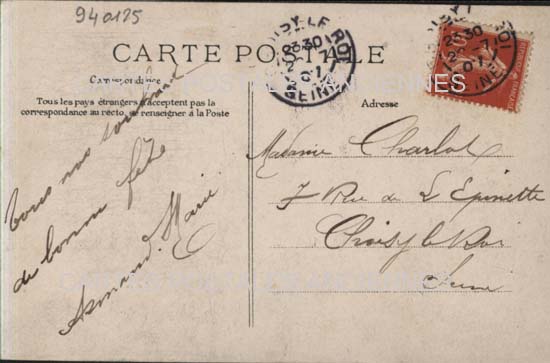 940125
CARTE POSTALE
Correspondance
Tous les pays étrangers n'acceptent pas la
correspondance au recto, se renseigner à la Poste
Tous nos souhaits
de bonne fête
Armand. Marie
Adresse
Madame Charlot
7 Rue de L'Epinette
Choisy le Roi
Seine
CHOISY-LE-ROI
2 - 7
07
SEINE